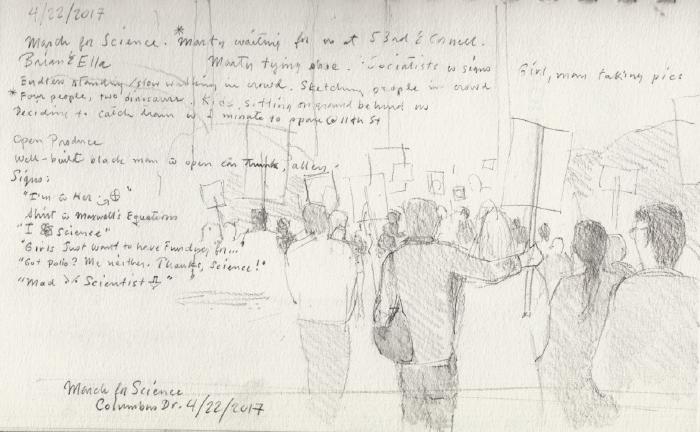 4/22/2017
March for Science. *Marty waiting for us at 53rd & Cornell.
Brian & Ella Marty tying shoe. Socialists w signs Girl, man taking pics
Endless standing/slow walking in crowd. Sketching people in crowd
*Four people, two dinosaurs. Kids sitting on ground behind us
Deciding to catch train w 1 minute to spare @ 11th St
Open Produce
Well-built black man w open can trunk, alley.
Signs:
"I'm w Her
Shirt w Maxwell's Equations
"I Science"
"Girls Just want to have Funding for..."
"Got polio? Me neither. Thanks, Science!"
"Mad Scientist
March for Science
Columbus Dr. 4/22/2017